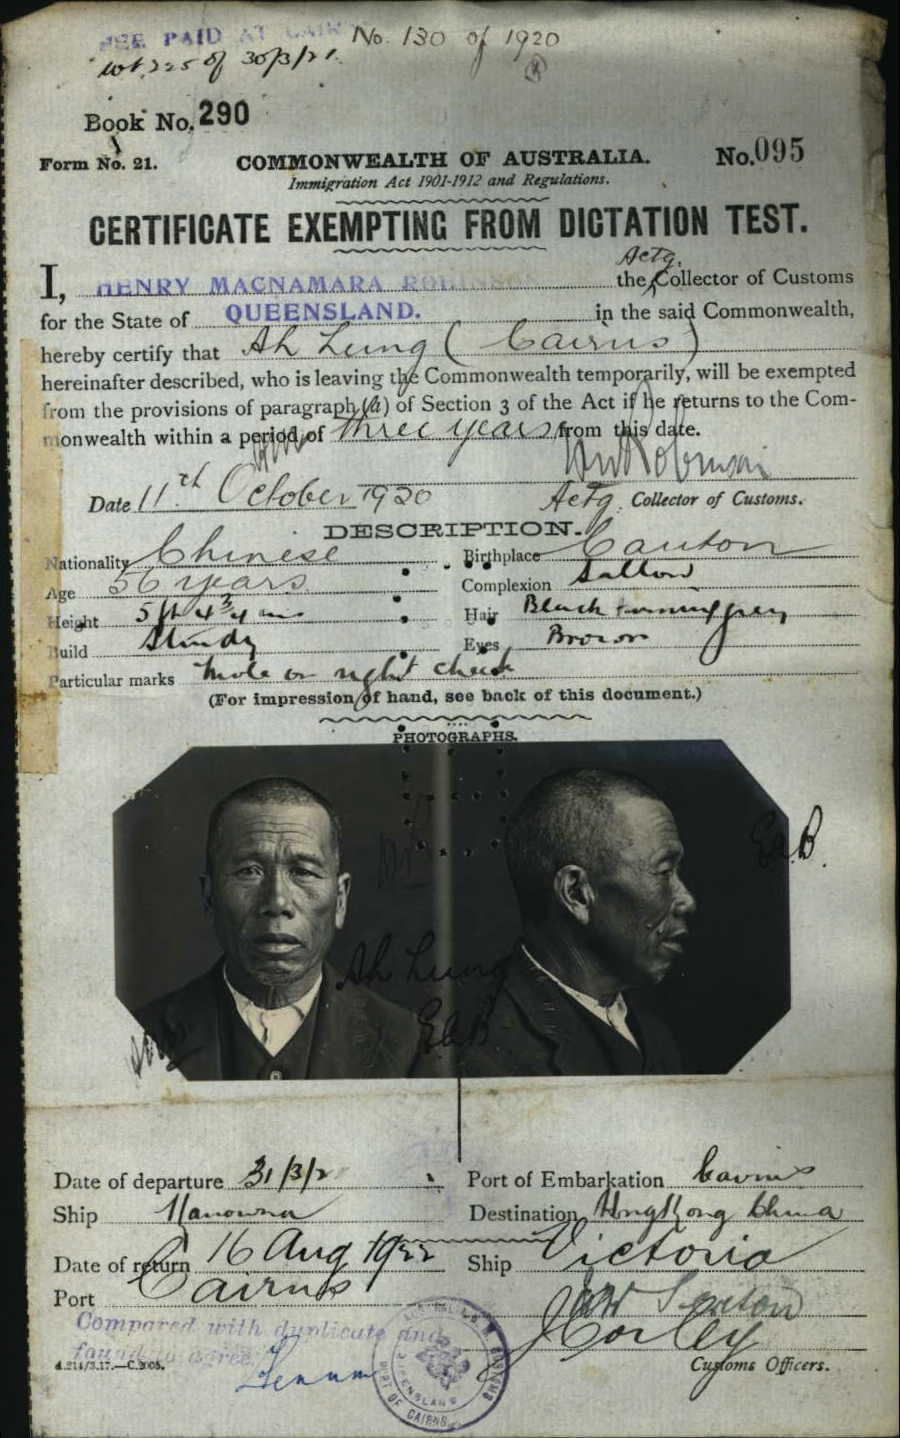 FEE PAID AT CAIRNS No. 130 of 1920
225 of 30/3/21.
Book No. 290
Form No. 21. COMMONWEALTH OF AUSTRALIA. No. 095
Immigration Act 1901-1912 and Regulations.
CERTIFICATE EXEMPTING FROM DICTATION TEST.
I, HENRY MACNAMARA ROBINSON the Actg. Collector of Customs
for the State of QUEENSLAND. in the said Commonwealth,
hereby certify that Ah Lung (Cairns)
hereinafter described, who is leaving the Commonwealth temporarily, will be exempted
from the provisions of paragraph (a) of Section 3 of the Act if he returns to the Com-
monwealth within a period of three years from this date.
Robinson
Date 11th October 1920 Actg. Collector of Customs.
DESCRIPTION.
Nationality Chinese Birthplace Canton
Age 56 years Complexion Sallow
Height 5 ft 4 3/4 ins Hair Black turning grey
Build Sturdy Eyes Brown
Particular marks Mole on right cheek
(For impression of hand, see back of this document.)
PHOTOGRAPHS.
Ah Lung
Date of departure 31/3/21 Port of Embarkation Cairns
Ship Kanowna Destination HongKong China
Date of return 16 Aug 1922 Ship Victoria
Port Cairns
Compared with duplicate and
found to agree.
4.214/3.17.—C.2005. Customs Officers.
PORT OF CAIRNS